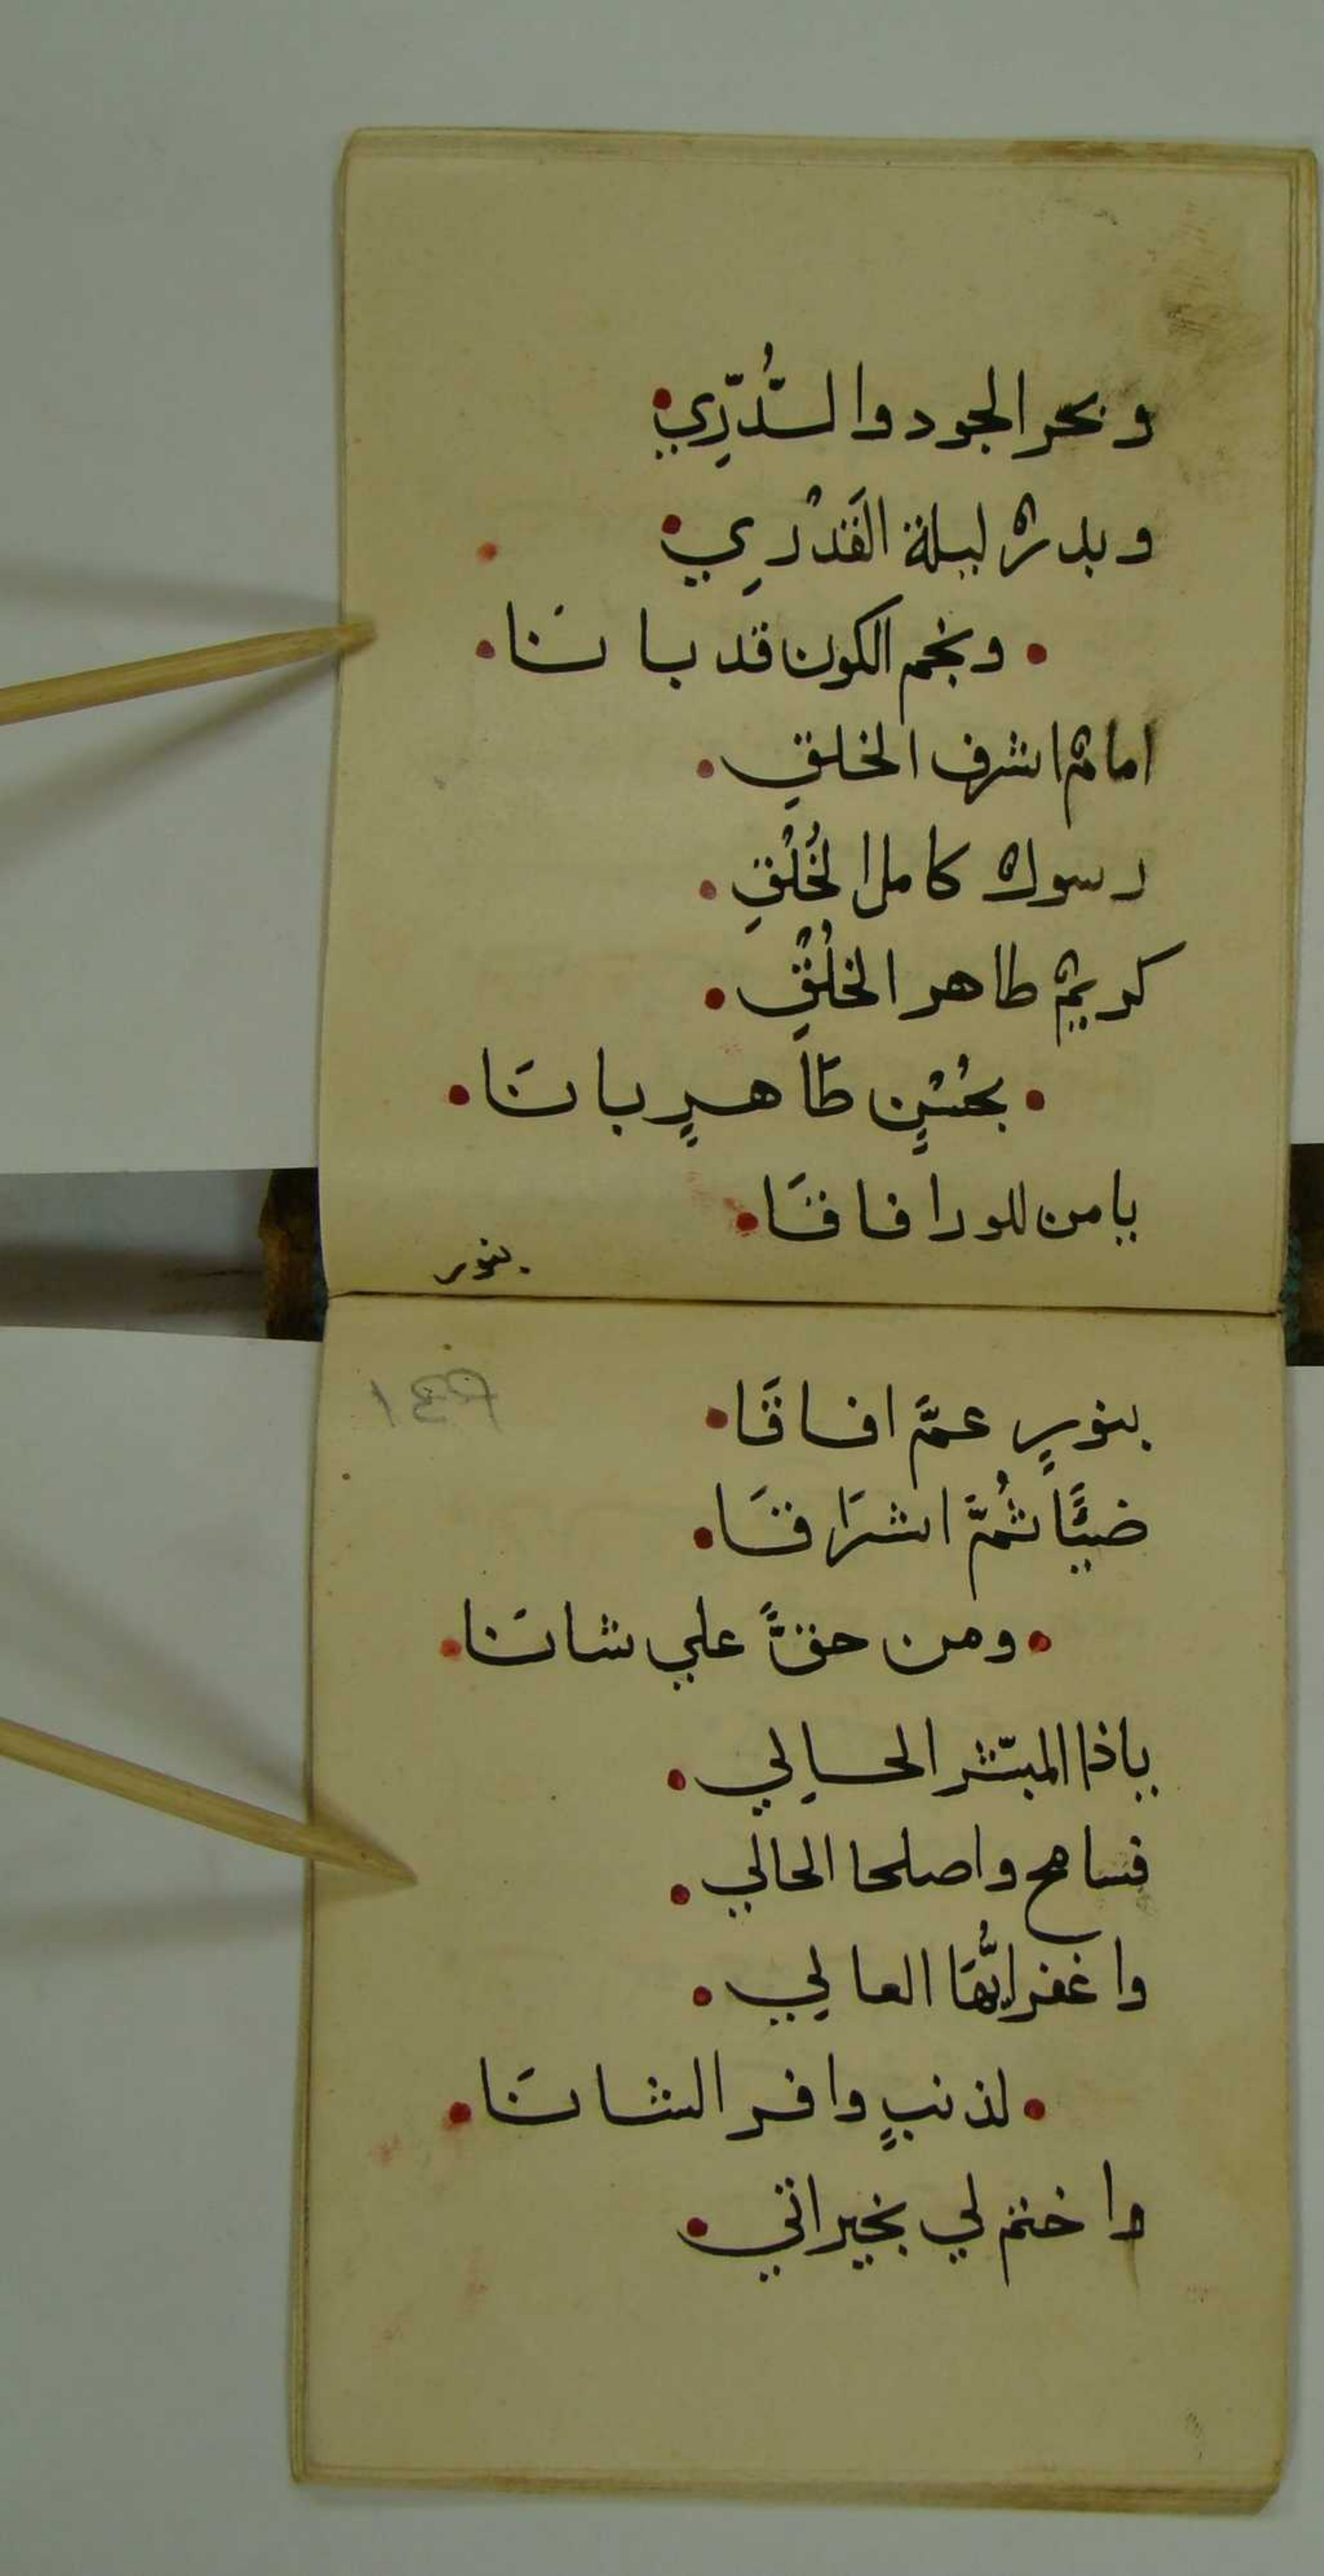 وبحر الجود والدُّرِّي
وبدرٌ ليلة القَدْرِي
ونجم الكون قد بانَا
امامٌ اشرف الخلقِ
رسولٌ كامل الخُلْقِ
كريمٌ طاهر الخُلْقِ
بحُسْنٍ طَاهرٍ بانَا
يا من للورا فاقَا
بنور
بنورٍ عمَّ افاقَا
ضيًّا ثُمَّ اشرَاقَا
ومن حقًّ علي شانَا
ياذا المبسّر الحالِي
فسامح واصلحا الحالي
واغفر ايُّهَا العالِي
لذنبٍ وافر الشانَا
واختم لي بخيراتي